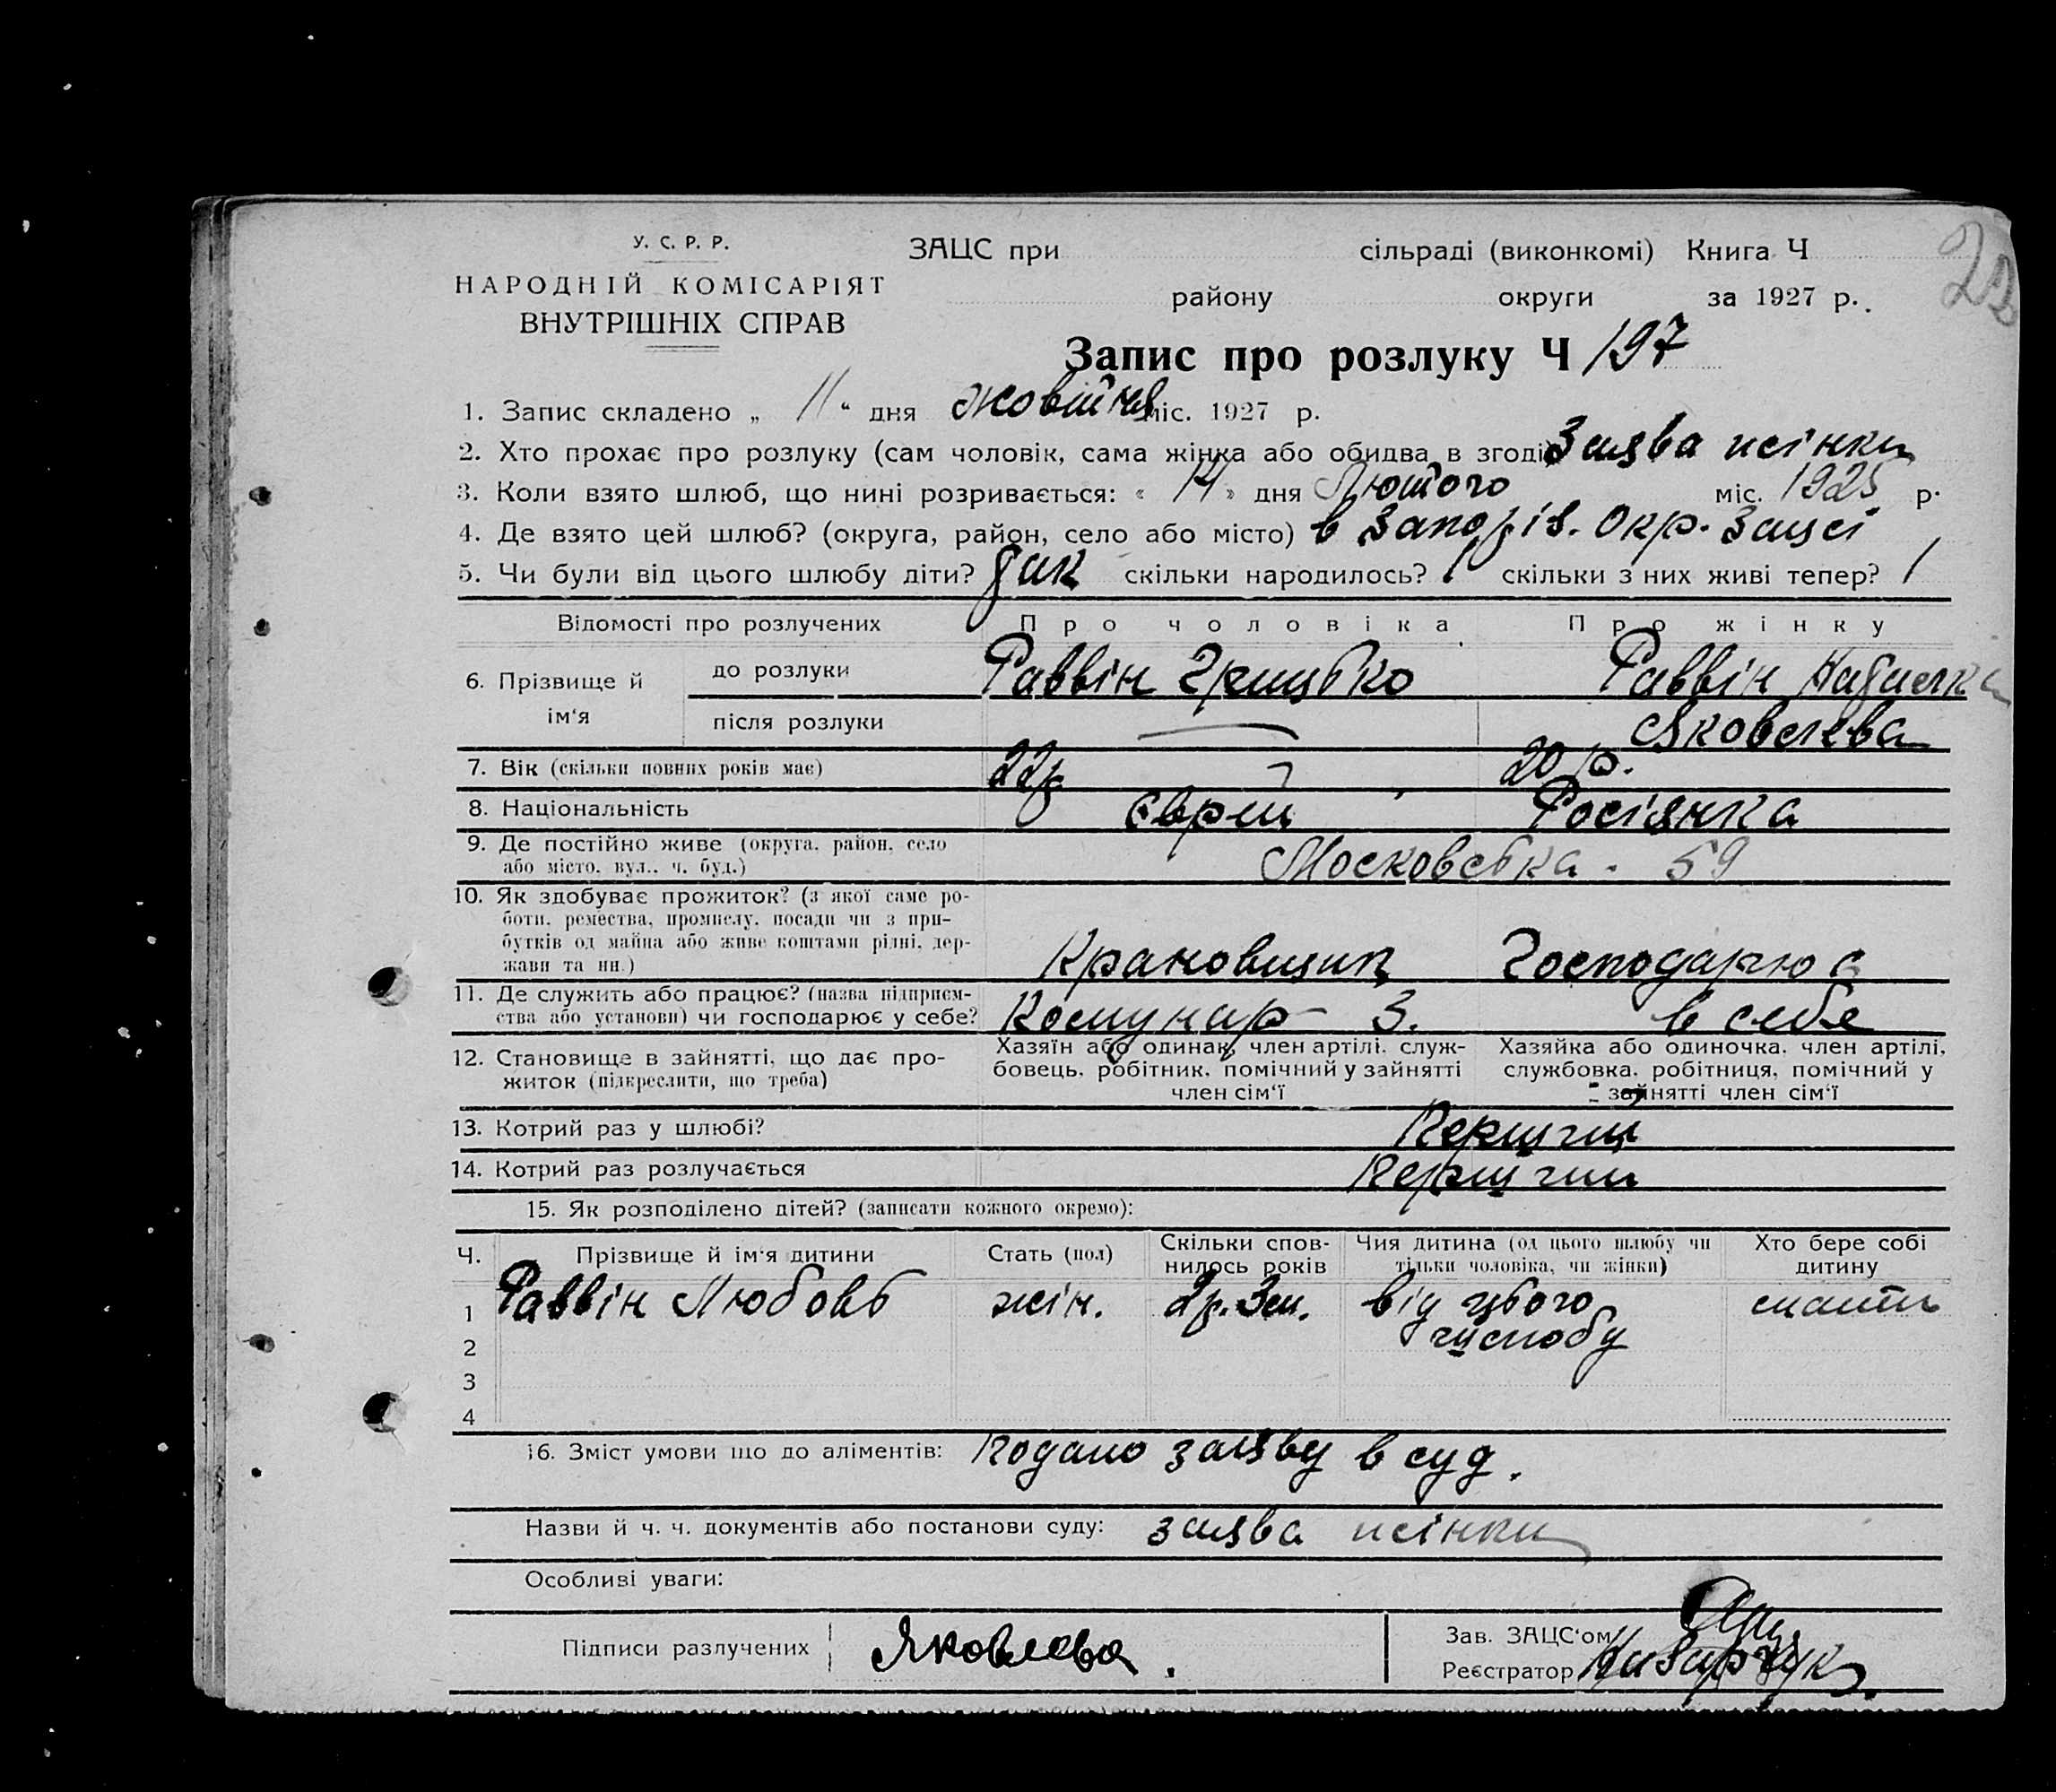 У. С. Р. Р.
НАРОДНІЙ КОМІСАРІЯТ
ВНУТРІШНІХ СПРАВ
ЗАЦС при сільраді (виконкомі) Книга Ч
району округи за 1927 р.
22
Запис про розлуку Ч 197
1. Запис складено „ 11 “ дня жовтня міс. 1927 р.
2. Хто прохає про розлуку (сам чоловік, сама жінка або обидва в згоді) Заява жінки
3. Коли взято шлюб, що нині розривається: « 14 » дня Лютого міс. 1925 р.
4. Де взято цей шлюб? (округа, район, село або місто) в Запоріз. Окр. Зацсі
5. Чи були від цього шлюбу діти? так скільки народилось? 1 скільки з них живі тепер? 1
Відомості про розлучених Про чоловіка Про жінку
6. Прізвище й ім‘я
до розлуки Раввін Грицько Раввін
після розлуки — Яковлева
7. Вік (скільки повних років має) 22р 20 р.
8. Національність Єврей Росіянка
9. Де постійно живе (округа, район, село
або місто, вул., ч. буд.) Московська. 59
10. Як здобуває прожиток? (з якої саме ро-
боти, ремества, промислу, посади чи з при-
бутків од майна або живе коштами рідні, дер-
жави та ин.) Крановщик Господарює
11. Де служить або працює? (назва підприєм-
ства або установи) чи господарює у себе? Комунар З. в себе
12. Становище в зайнятті, що дає про-
житок (підкреслити, що треба)
Хазяїн або одинак, член артілі, служ-
бовець, робітник, помічний у зайнятті
член сім‘ї
Хазяйка або одиночка, член артілі,
службовка, робітниця, помічний у
зайнятті член сім‘ї
13. Котрий раз у шлюбі? Перший
14. Котрий раз розлучається Перший
15. Як розподілено дітей? (записати кожного окремо):
Ч. Прізвище й ім‘я дитини Стать (пол) Скільки спов-
нилось років Чия дитина (од цього шлюбу чи
тільки чоловіка, чи жінки) Хто бере собі
дитину
1 Раввін Любовь жін. 2р. 3м. від цього
шлюбу мати
2
3
4
16. Зміст умови що до аліментів: Подано заяву в суд.
Назви й ч. ч. документів або постанови суду: заява жінки
Особливі уваги:
Підписи разлучених Яковлева.
Зав. ЗАЦС‘ом
Реєстратор